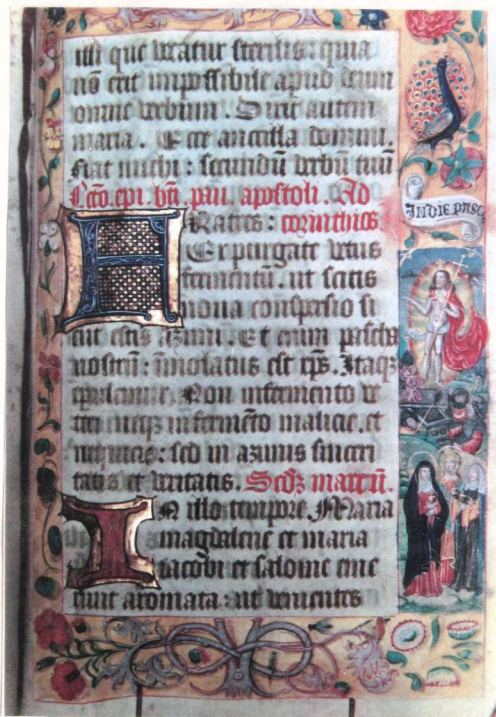 illi que vocatur sterilis: quia
nō erit impossibile apud deum
omne verbum. Dixit autem
maria. Ecce ancilla domini.
fiat michi: secundū verbū tuū
Lc̄o. epi. bt̄i. pau. apostoli. Ad
FRatres: corinthios
Expurgate vetus
fermentū. ut sitis
nova conspersio si
cut estis azimi. Et enim pascha
nostrū: īmolatus est xp̄s. Itaqꝫ
epulemur. Non in fermento ve
teri neqꝫ in fermēto malicie. et
nequicie: sed in azimis sinceri
tatis et veritatis. Scd̄ꝫ marcū.
IN illo tempore. Maria
magdalene et maria
iacobi et salome eme
runt aromata: ut venientes
IN DIE PASC